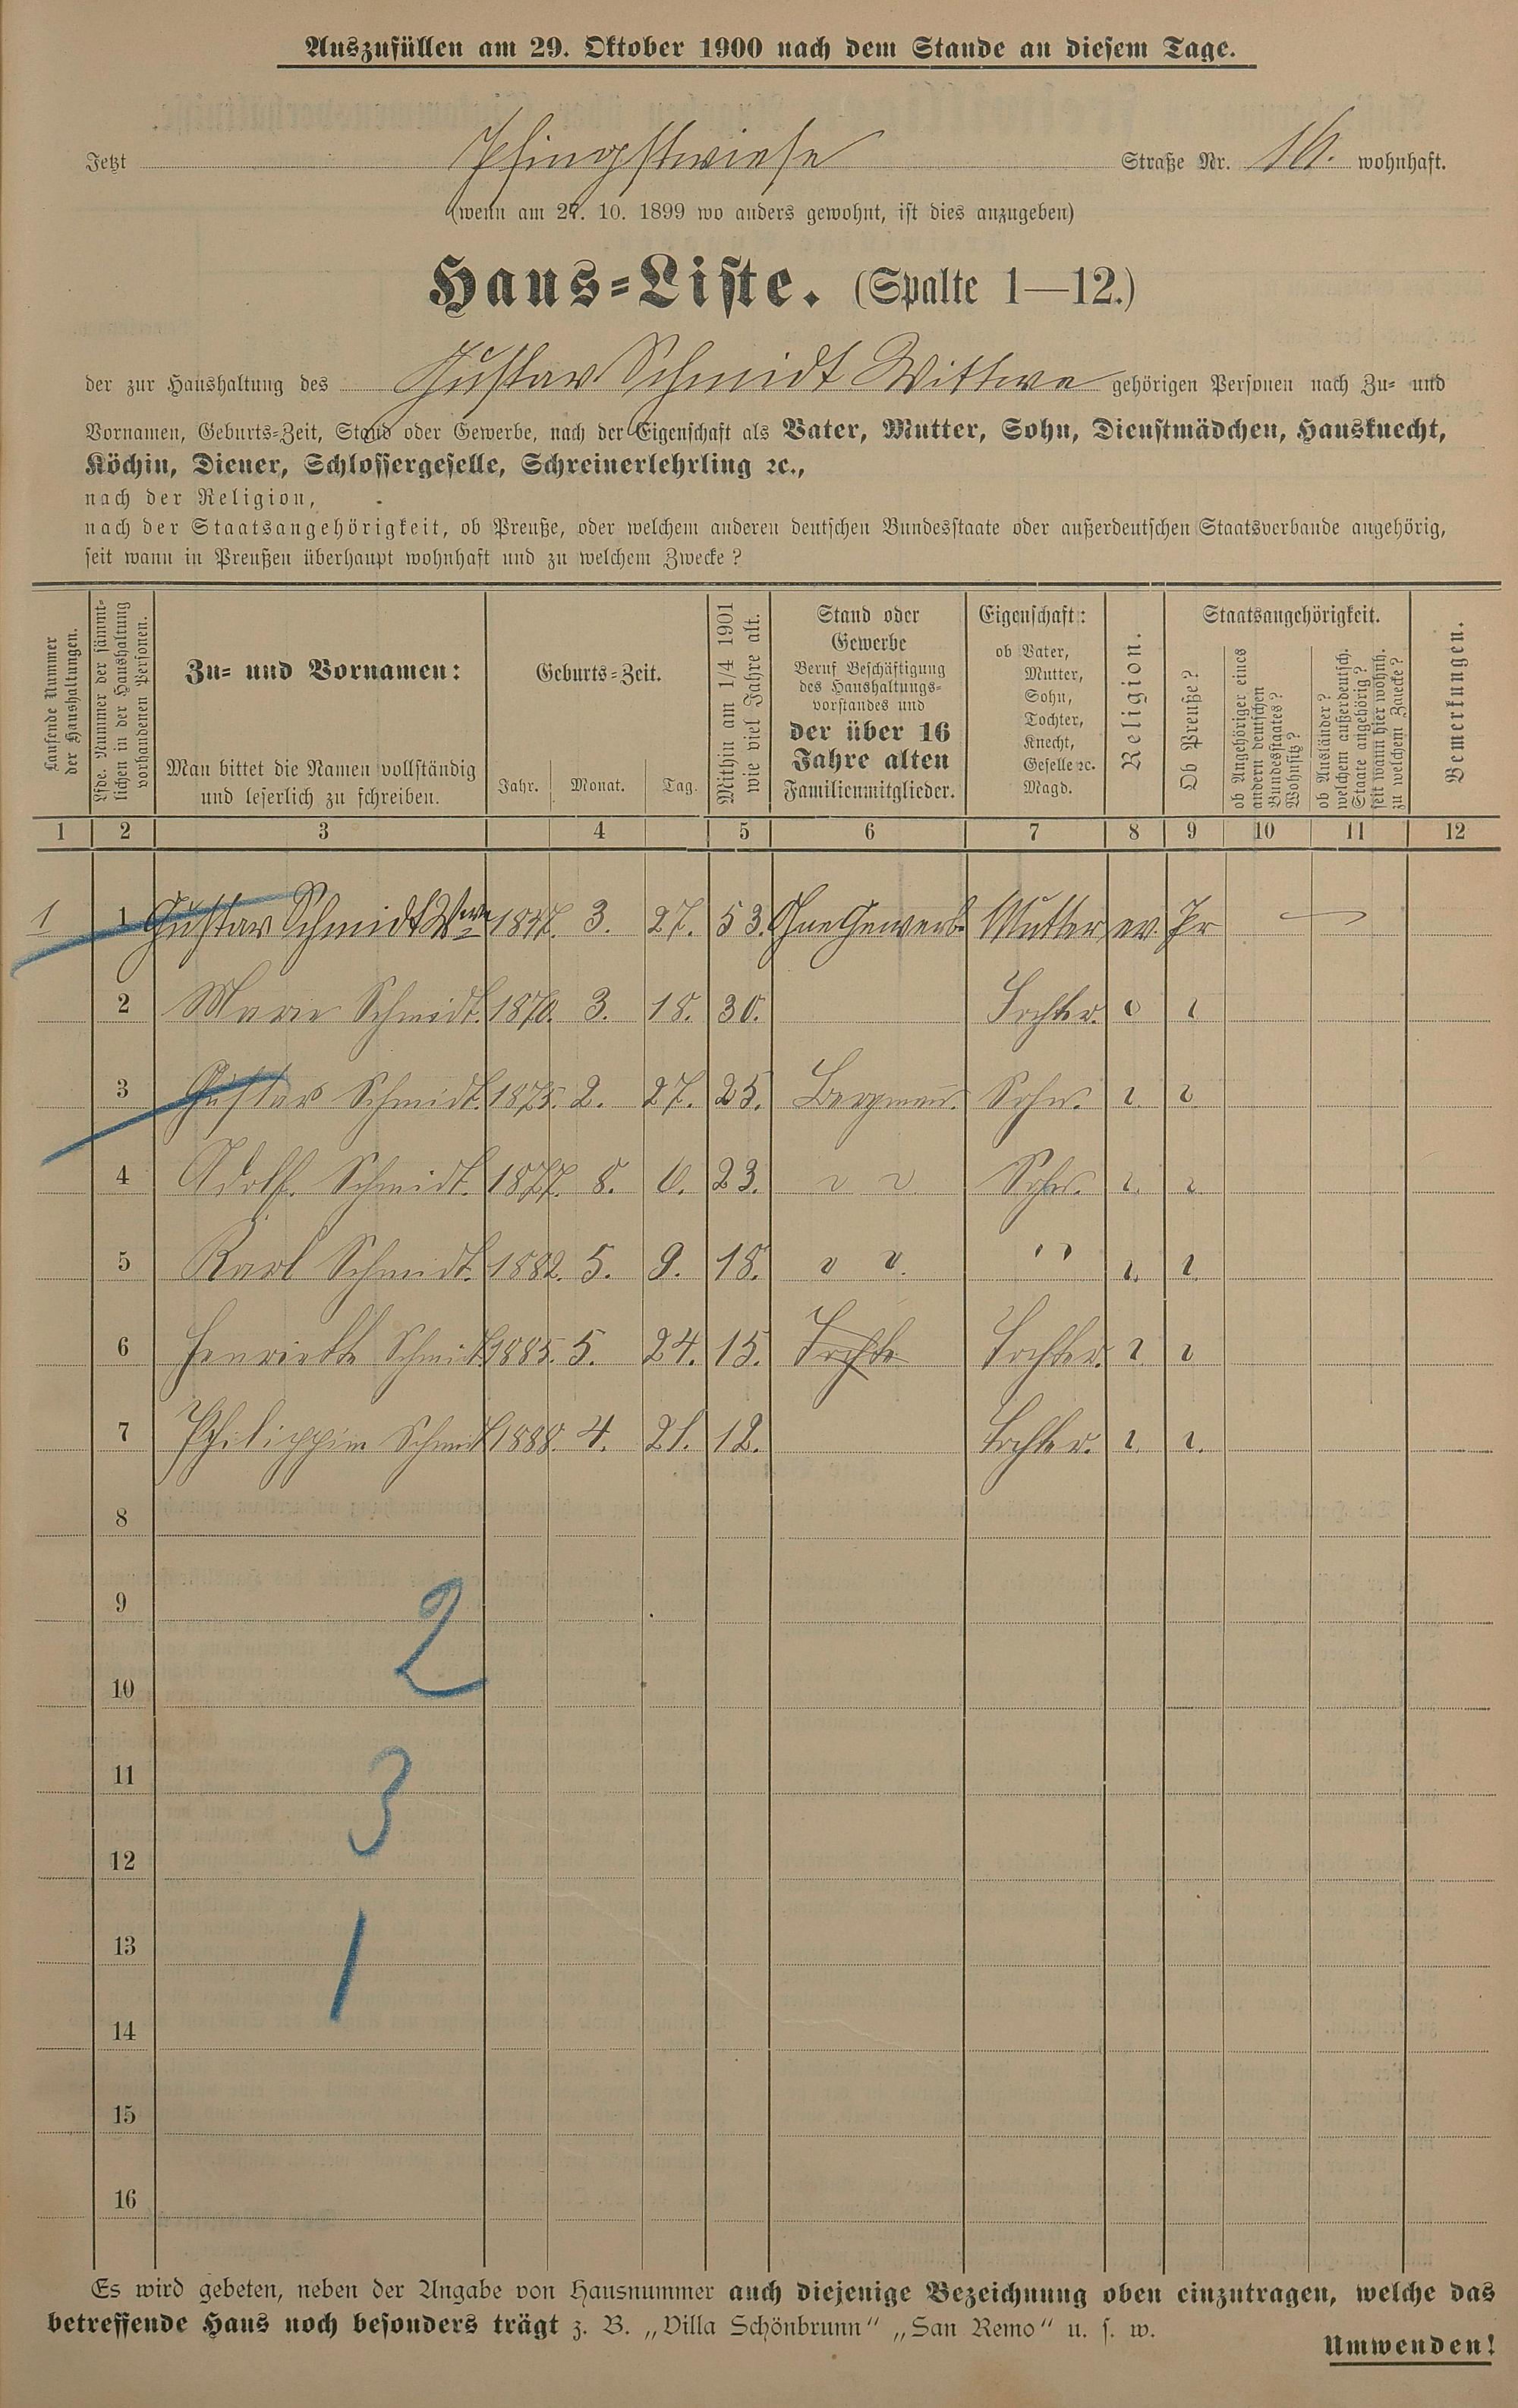 Auszufüllen am 29. Oktober 1900 nach dem Stande an diesem Tage.
Jetzt Pfingstwiese Straße Nr. 16. wohnhaft.
(wenn am 27. 10. 1899 wo anders gewohnt, ist dies anzugeben)
Haus-Liste. (Spalte 1—12.)
der zur Haushaltung des Gustav Schmidt Wittwe gehörigen Personen nach Zu- und
Vornamen, Geburts-Zeit, Stand oder Gewerbe, nach der Eigenschaft als Vater, Mutter, Sohn, Dienstmädchen, Hausknecht,
Köchin, Diener, Schlossergeselle, Schreinerlehrling ꝛc.,
nach der Religion,
nach der Staatsangehörigkeit, ob Preuße, oder welchem anderen deutschen Bundesstaate oder außerdeutschen Staatsverbande angehörig,
seit wann in Preußen überhaupt wohnhaft und zu welchem Zwecke?
Laufende Nummer
der Haushaltungen.
Lfde. Nummer der sämmt-
lichen in der Haushaltung
vorhandenen Personen.
Zu- und Vornamen:
Man bittet die Namen vollständig
und leserlich zu schreiben.
Geburts-Zeit.
Jahr. Monat. Tag.
Mithin am 1/4 1901
wie viel Jahre alt.
Stand oder
Gewerbe
Beruf Beschäftigung
des Haushaltungs-
vorstandes und
der über 16
Jahre alten
Familienmitglieder.
Eigenschaft:
ob Vater,
Mutter,
Sohn,
Tochter,
Knecht,
Geselle ꝛc.
Magd.
Religion.
Staatsangehörigkeit.
Ob Preuße?
ob Angehöriger eines
andern deutschen
Bundesstaates?
Wohnsitz?
ob Ausländer?
welchem außerdeutsch.
Staate angehörig?
seit wann hier wohnh.
zu welchem Zwecke?
Bemerkungen.
1 2 3 4 5 6 7 8 9 10 11 12
1 1 Gustav Schmidt Wwe 1847. 3. 27. 53. Ohne Gewerb. Mutter ev. Pr —
2 Marie Schmidt. 1870. 3. 18. 30. Tochter. " "
3 Gustav Schmidt. 1875. 2. 27. 25. Bergman. Sohn. " "
4 Adolf. Schmidt. 1877. 8. 6. 23. " " Sohn. " "
5 Karl Schmidt. 1882. 5. 9. 18. " " " " "
6 Henriette Schmidt 1885. 5. 24. 15. Tochte Tochter. " "
7 Philippine Schmidt 1888. 4. 21. 12. Tochter. " "
8
9
2
10
11
3
12
13
1
14
15
16
Es wird gebeten, neben der Angabe von Hausnummer auch diejenige Bezeichnung oben einzutragen, welche das
betreffende Haus noch besonders trägt z. B. „Villa Schönbrunn“ „San Remo“ u. s. w.
Umwenden!